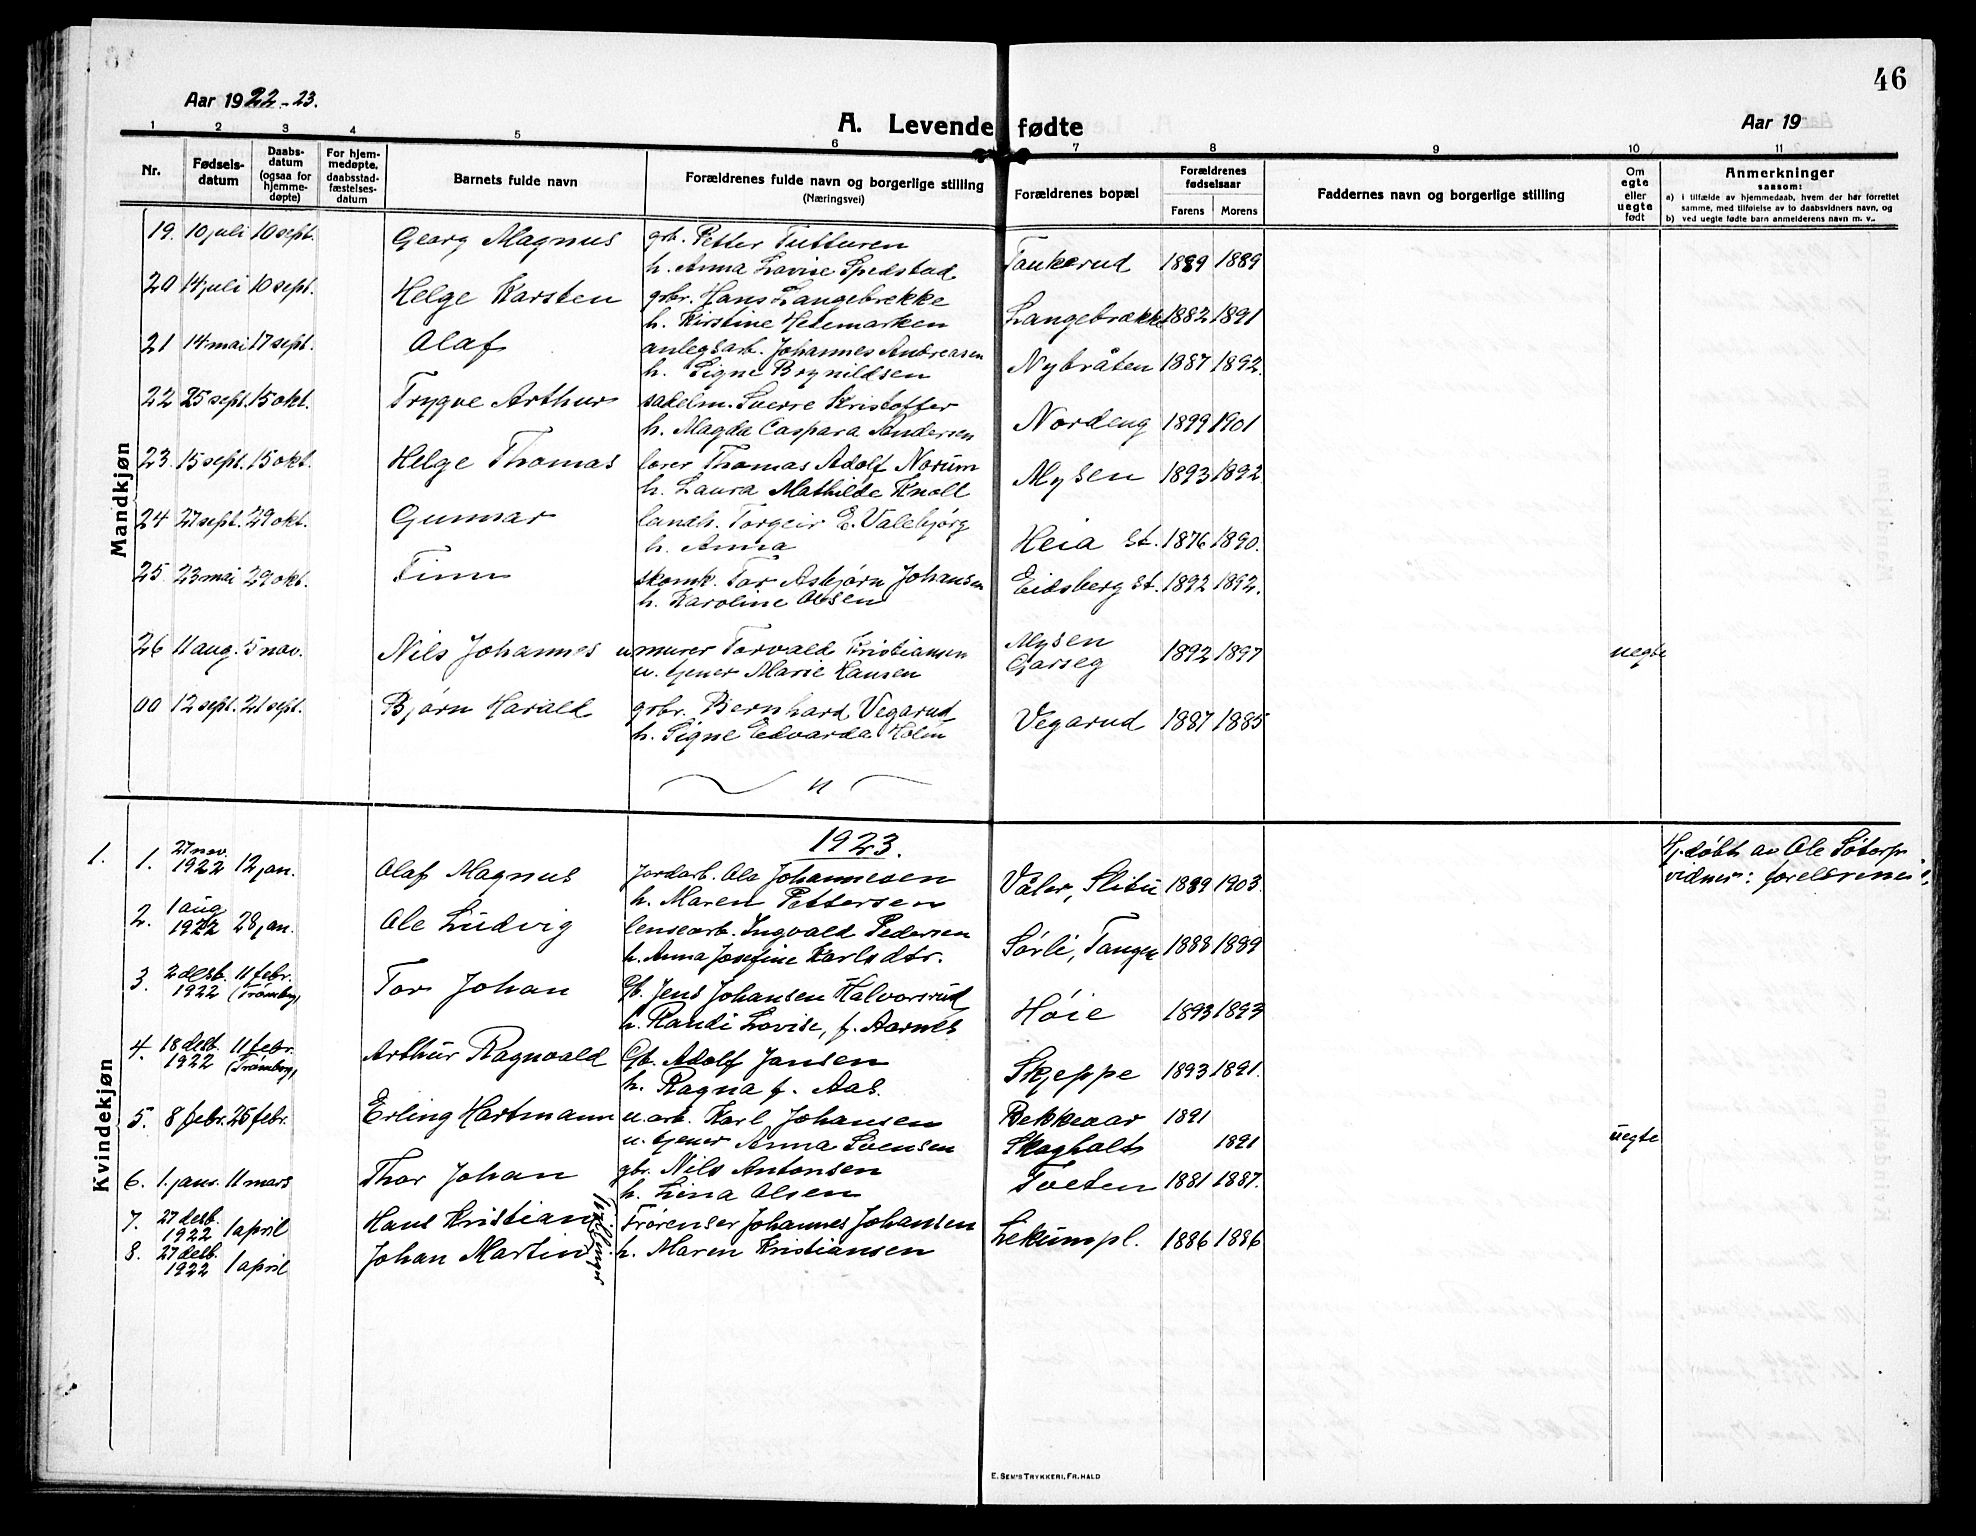 46
Aar 1922-23.
A. Levende fødte
Aar 19
1 2 3 4 5 6 7 8 9 10 11
Nr.
Fødsels-
datum
Daabs-
datum
(ogsaa for
hjemme-
døpte)
For hjem-
medøpte,
daabsstad-
fæstelses-
datum
Barnets fulde navn
Forældrenes fulde navn og borgerlige stilling
(Næringsvei)
Forældrenes bopæl
Forældrenes
fødselsaar
Farens Morens
Faddernes navn og borgerlige stilling
Om
egte
eller
uegte
født
Anmerkninger
saasom:
a) i tilfælde av hjemmedaab, hvem der hår forrettet
samme, med tilføielse av to daabsvidners navn, og
b) ved uegte fødte barn anmelderens navn m. v..
Mandkjøn
19. 10 juli 10 sept. Georg Magnus grb. Petter Tutturen
h. Anna Lovise Spedstad Tankerud 1889 1889
20 14 juli 10 sept. Helge Karsten gbr. Hans Langebrekke
h. Kirstine Hetemarken Langebrække 1882 1891
21 14 mai 17 sept. Olaf anlegsarb. Johannes Andreasen
h. Signe Brynildsen Nybråten 1887 1892.
22 25 sept. 15 okt. Trygve Arthur sadelm. Sverre Kristoffer
h. Magda Caspara Andersen Nordeng 1899 1901
23. 15 sept. 15 okt. Helge Thomas lærer Thomas Adolf Norum
h. Laura Mathilde Knoll Mysen 1893 1892
24 27 sept. 29 okt. Gunnar landh. Torgeir E. Valebjørg
h. Anna Heia st. 1876 1890.
25. 23 mai 29 okt. Finn skomk. Tor Asbjørn Johansen
h. Karoline Olsen Eidsberg st. 1892 1892.
26 11 aug. 5 nov. Nils Johannes u murer Torvald Kristiansen Mysen
u. tjener Marie Hansen Garseg 1892 1897 uegte
00 12 sept. 21 sept. Bjørn Harald gbr. Bernhard Vegarud
h. Signe Edvarda Holm Vegarud 1887 1885
1923.
Kvindekjøn
1. 1. 27 nov. 1922 12 jan. Olaf Magnus Jordarb. Ole Johannesen
h. Maren Pettersen Våler, Slitu 1889 1903. Hj. døbt av Ole
vidner: forældrene
2. 1 aug 1922 28 jan. Ole Ludvig lensearb. Ingvald Pedersen
h. Anna Josefine Karlsdtr. Sørli, Tangen 1888 1889
3. 2 desb. 1922 11 febr. (Trømborg) Tor Johan Gb. Jens Johansen Halvorsrud
h. Randi Lovise, f. Aarnes Høie 1893 1893
4. 18 desb. 1922 11 febr. (Trømborg) Arthur Ragnvald Gb. Adolf Jansen
h. Ragna f. Aas. Skjeppe 1893 1891.
5. 8 febr. 25 febr. Erling Hartmann u. arb. Karl Johansen Bekkevar 1891
u. tjener Anna Svensen Skogholt 1891 uegte
6. 1. jan. 11 mars Thor Johan gbr. Nils Antonsen
h. Lina Olsen Tveten 1881 1887.
7. 27 desb. 1922 1 april Hans Kristian Frørenser Johannes Johansen
8. 27 desb. 1922 1 april Johan Martin h. Maren Kristiansen Lekumpl. 1886 1886
Tvillinger
E. SEM'S TRYKKERI, FR. HALD